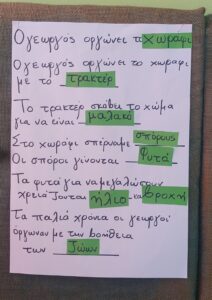 Ο γεωργός οργώνει το χωράφι
Ο γεωργός οργώνει το χωράφι
με το τρακτέρ
Το τρακτέρ σκάβει το χώμα
για να είναι μαλακό
Στο χωράφι σπέρναμε σπόρους
Οι σπόροι γίνονται φυτά
Τα φυτά για να μεγαλώσουν
χρειάζονται ήλιο και βροχή
Τα παλιά χρόνια οι γεωργοί
όργωναν με την βοήθεια
των ζώων